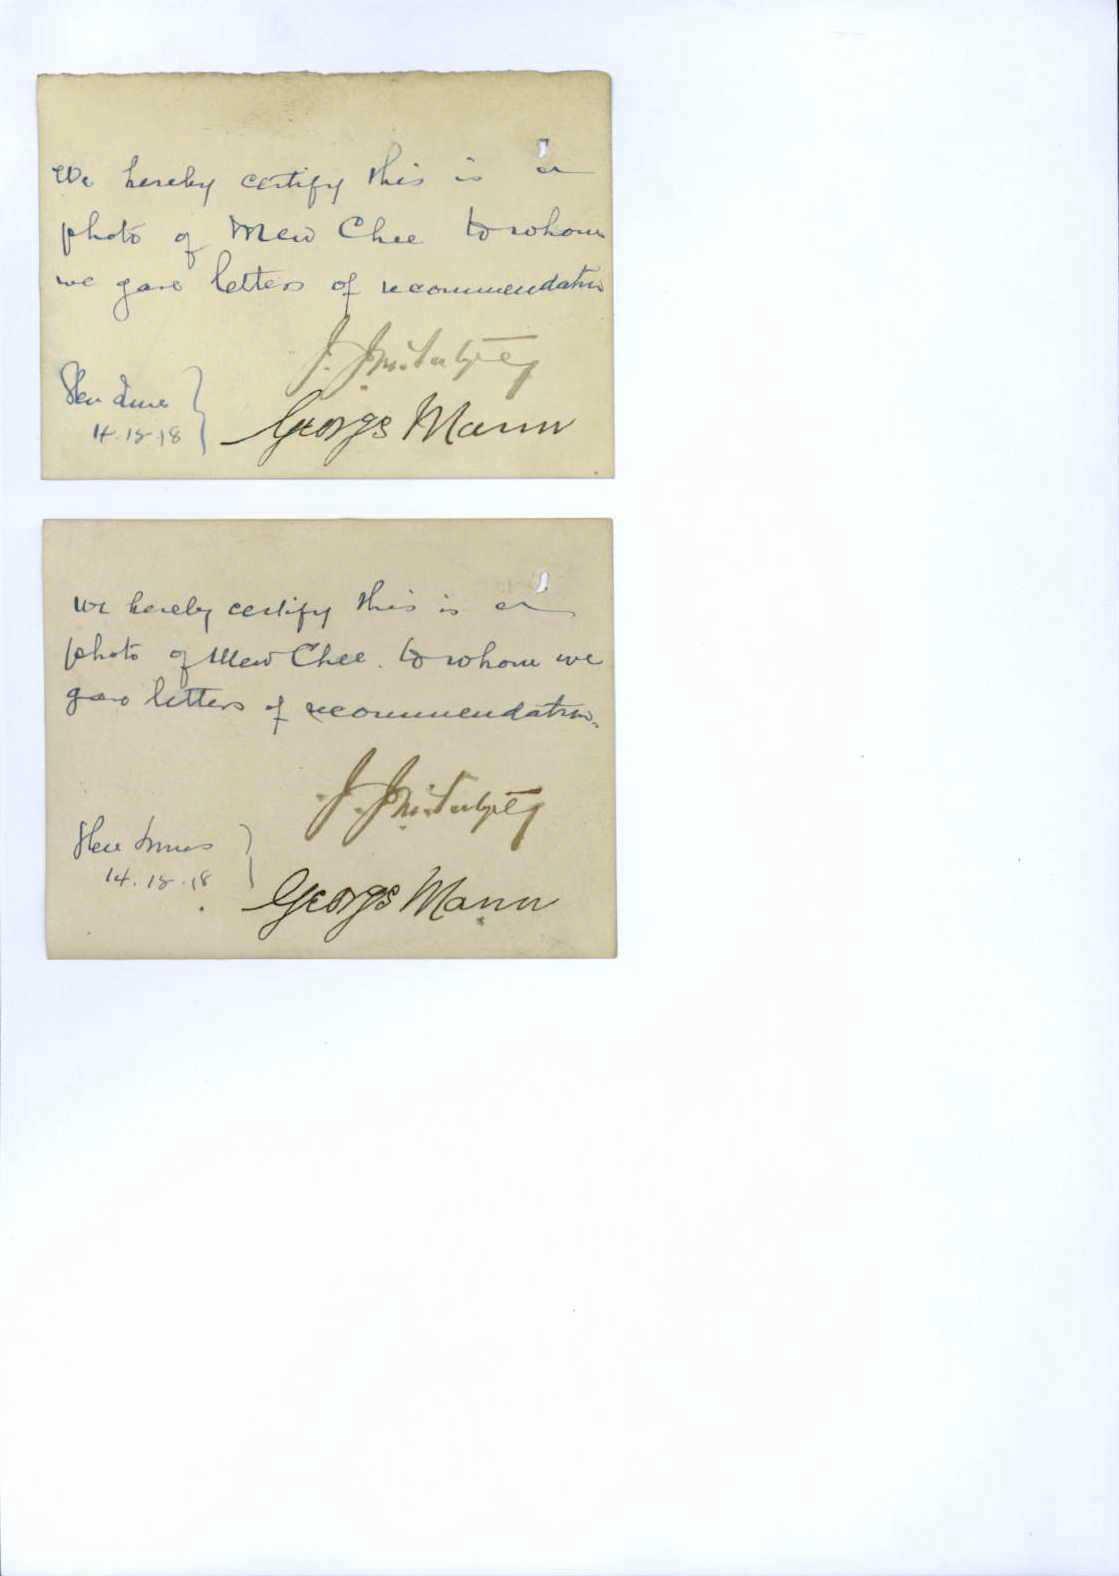 We hereby certify this is a
photo of Mew Chee to whom
we gave letters of recommendation
J.
Glen Innes
14.12.18
George Mann
We hereby certify this is a
photo of Mew Chee. to whom we
gave letters of recommendation.
J.
Glen Innes
14.12.18
George Mann